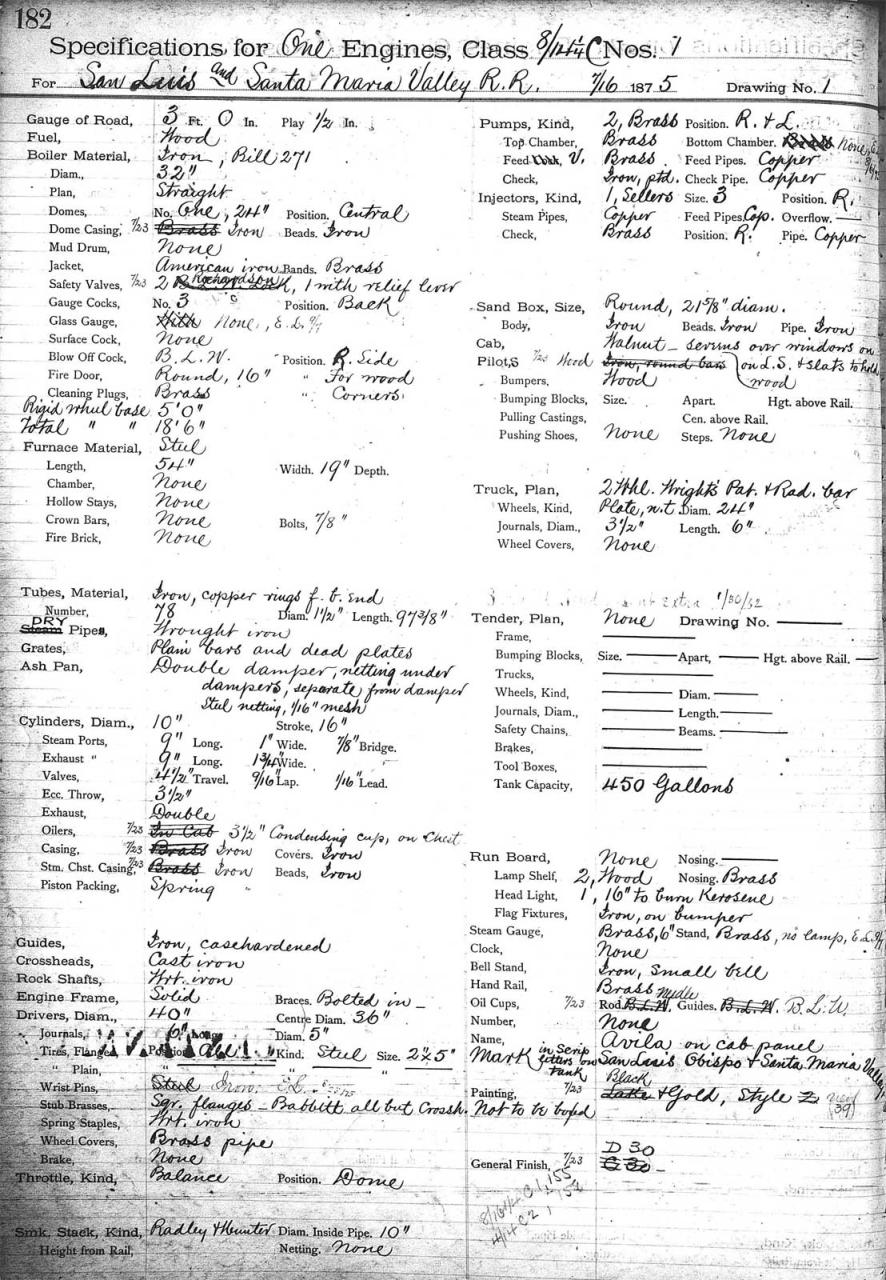 182
Specifications for One Engines, Class 8/14¼ C Nos. 1
For San Luis and Santa Maria Valley R.R. 7/16 1875 Drawing No. 1
Gauge of Road, 3 Ft. 0 In. Play 1/2 In.
Fuel, Wood
Boiler Material, Iron, Bill 271
Diam., 32"
Plan, Straight
Domes, No. One, 24" Position. Central
Dome Casing, 7/23 Brass Iron Beads. Iron
Mud Drum, None
Jacket, American iron Bands. Brass
Safety Valves, 7/23 2 Richardson, 1 with relief lever
Gauge Cocks, No. 3 Position. Back
Glass Gauge, With None, E.L.
Surface Cock, None
Blow Off Cock, B.L.W. Position. R. Side
Fire Door, Round, 16" " For wood
Cleaning Plugs, Brass " Corners
Rigid wheel base 5'0"
Total " " 18'6"
Furnace Material, Steel
Length, 54" Width. 19" Depth.
Chamber, None
Hollow Stays, None
Crown Bars, None Bolts, 7/8"
Fire Brick, None
Tubes, Material, Iron, copper rings f. b. end
Number, 78 Diam. 1½" Length. 97 3/8"
DRY
Steam Pipes, Wrought iron
Grates, Plain bars and dead plates
Ash Pan, Double damper, netting under
dampers, separate from damper
Steel netting, 1/16" mesh
Cylinders, Diam., 10" Stroke, 16"
Steam Ports, 9" Long. 1" Wide. 7/8" Bridge.
Exhaust " 9" Long. 1¾" Wide.
Valves, 4½" Travel. 9/16" Lap. 1/16" Lead.
Ecc. Throw, 3½"
Exhaust, Double
Oilers, 7/23 In Cab 3½" Condensing cup, on Chest
Casing, 7/23 Brass Iron Covers. Iron
Stm. Chst. Casing, 7/23 Brass Iron Beads, Iron
Piston Packing, Spring "
Guides, Iron, casehardened
Crossheads, Cast iron
Rock Shafts, Wrt. iron
Engine Frame, Solid Braces. Bolted in
Drivers, Diam., 40" Centre Diam. 36"
Journals, 6" Long. Diam. 5"
Tires, Flanged, Position. Kind. Steel Size. 2"x5"
" Plain, " " "
Wrist Pins, Steel Iron. E.L.
Stub Brasses, Sqr. flanges - Babbitt all but Crossh.
Spring Staples, Wrt. iron
Wheel Covers, Brass pipe
Brake, None
Throttle, Kind, Balance Position. Dome
Smk. Stack, Kind, Radley & Hunter Diam. Inside Pipe. 10"
Height from Rail, Netting. None
Pumps, Kind, 2, Brass Position. R. & L.
Top Chamber, Brass Bottom Chamber. Brass None,
Feed Cock, V. Brass Feed Pipes. Copper
Check, Iron, ptd. Check Pipe. Copper
Injectors, Kind, 1, Sellers Size. 3 Position. R.
Steam Pipes, Copper Feed Pipes. Cop. Overflow.
Check, Brass Position. R. Pipe. Copper
Sand Box, Size, Round, 21 5/8" diam.
Body, Iron Beads. Iron Pipe. Iron
Cab, Walnut - screens over windows on
Pilots, 7/23 Wood Iron, round bars on L.S. & slats to hold
Bumpers, Wood wood
Bumping Blocks, Size. Apart. Hgt. above Rail.
Pulling Castings, Cen. above Rail.
Pushing Shoes, None Steps. None
Truck, Plan, 2 Whl. Wright's Pat. & Rad. bar
Wheels, Kind, Plate, n.t. Diam. 24"
Journals, Diam., 3½" Length. 6"
Wheel Covers, None
Extra
Tender, Plan, None Drawing No.
Frame,
Bumping Blocks, Size. Apart, Hgt. above Rail.
Trucks,
Wheels, Kind, Diam.
Journals, Diam., Length.
Safety Chains, Beams.
Brakes,
Tool Boxes,
Tank Capacity, 450 Gallons
Run Board, None Nosing.
Lamp Shelf, 2, Wood Nosing. Brass
Head Light, 1, 16" to burn Kerosene
Flag Fixtures, Iron, on bumper
Steam Gauge, Brass, 6" Stand, Brass, no lamp, E.L.
Clock, None
Bell Stand, Iron, Small bell
Hand Rail, Brass
Oil Cups, 7/23 Rod. B.L.W. Needle Guides. B.L.W. B.L.W.
Number, None
Name, Avila on cab panel
Mark in Scrip letters on tank San Luis Obispo & Santa Maria Valley
Painting, 7/23 Lake Black & Gold, Style 2 (39)
Not to be boxed
D 30
General Finish, 7/23 C 30
8/10¼ C 1, 155
4/14 C 2 1 152